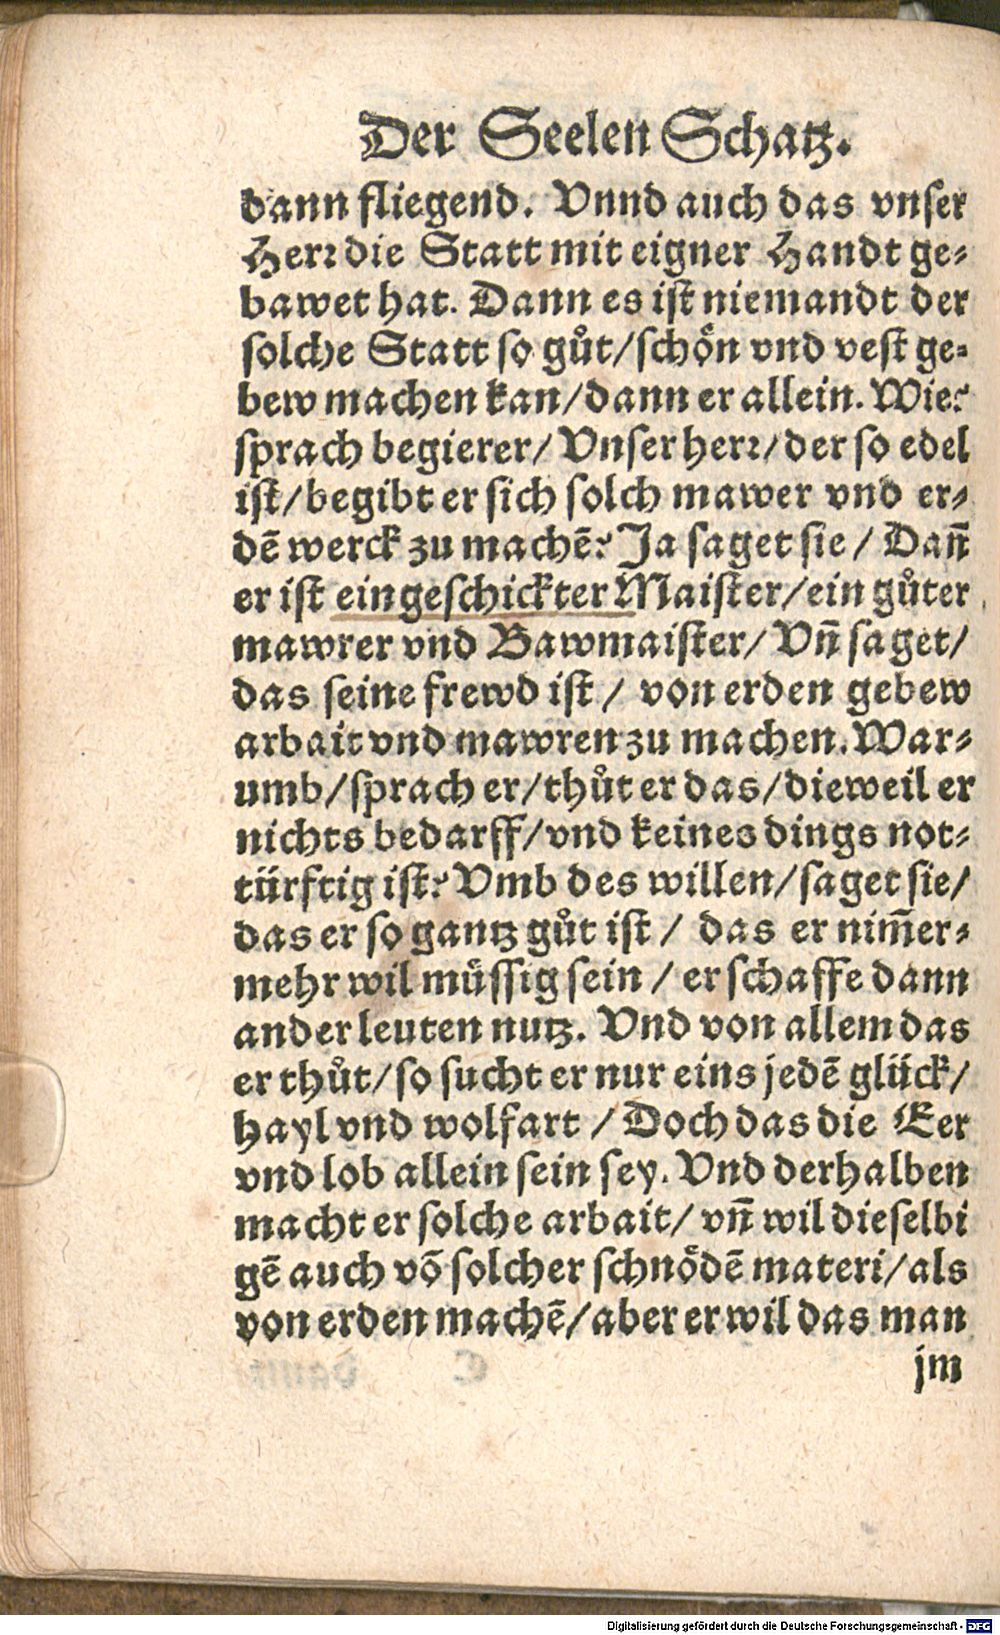 Der Seelen Schatz.
dann fliegend. Vnnd auch das vnser
Herꝛ die Statt mit eigner Handt ge⸗
bawet hat. Dann es ist niemandt der
solche Statt so gůt/schoͤn vnd vest ge⸗
bew machen kan/dann er allein. Wie?
sprach begierer/Vnser herꝛ/der so edel
ist/begibt er sich solch mawer vnd er⸗
dē werck zu machē? Ja saget sie / Dañ
er ist ein geschickter Maister/ein gůter
mawrer vnd Bawmaister/Vñ saget/
das seine frewd ist / von erden gebew
arbait vnd mawren zu machen. War⸗
umb/sprach er/thůt er das/dieweil er
nichts bedarff/vnd keines dings not⸗
türftig ist? Vmb des willen/saget sie/
das er so gantz gůt ist / das er nim̃er⸗
mehr wil muͤssig sein / er schaffe dann
ander leuten nutz. Vnd von allem das
er thůt/so sucht er nur eins jedē glück/
hayl vnd wolfart / Doch das die Eer
vnd lob allein sein sey. Vnd derhalben
macht er solche arbait/ vñ wil dieselbi
gē auch vō solcher schnoͤdē materi/als
von erden machē/aber er wil das man
jm
Digitalisierung gefördert durch die Deutsche Forschungsgemeinschaft - DFG